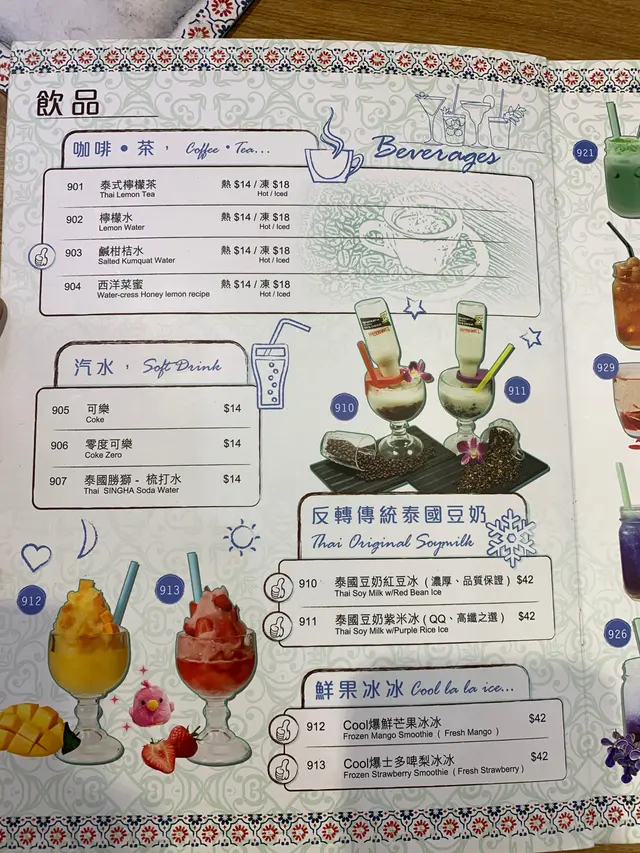 飲品
Beverages
咖啡•茶， Coffee•Tea...
901 泰式檸檬茶 熱 $14 / 凍 $18
Thai Lemon Tea Hot / Iced
902 檸檬水 熱 $14 / 凍 $18
Lemon Water Hot / Iced
903 鹹柑桔水 熱 $14 / 凍 $18
Salted Kumquat Water Hot / Iced
904 西洋菜蜜 熱 $14 / 凍 $18
Water-cress Honey lemon recipe Hot / Iced
汽水， Soft Drink
905 可樂 $14
Coke
906 零度可樂 $14
Coke Zero
907 泰國勝獅 - 梳打水 $14
Thai SINGHA Soda Water
910
911
反轉傳統泰國豆奶
Thai Original Soymilk
910 泰國豆奶紅豆冰（濃厚、品質保證） $42
Thai Soy Milk w/Red Bean Ice
911 泰國豆奶紫米冰（QQ、高纖之選） $42
Thai Soy Milk w/Purple Rice Ice
912
913
鮮果冰冰 Cool la la ice...
912 Cool爆鮮芒果冰冰 $42
Frozen Mango Smoothie ( Fresh Mango )
913 Cool爆士多啤梨冰冰 $42
Frozen Strawberry Smoothie ( Fresh Strawberry )
921
929
926